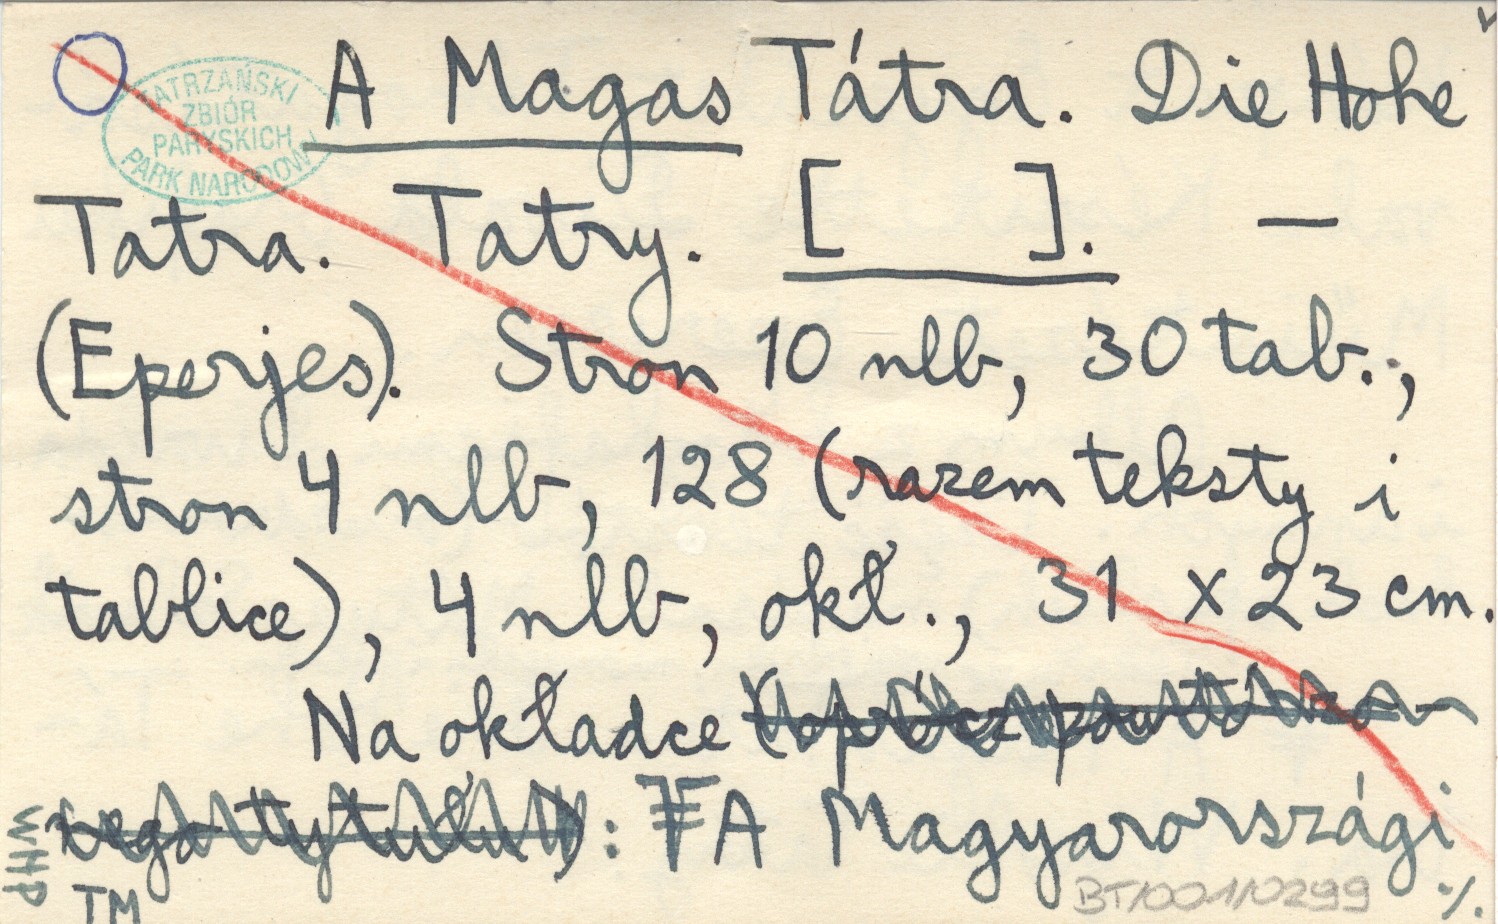 A Magas Tátra. Die Hohe
TATRZAŃSKI
ZBIÓR
PARYSKICH
PARK NARODOWY
Tatra. Tatry. [ ]. —
(Eperjes). Stron 10 nlb, 30 tab.,
stron 4 nlb, 128 (razem teksty i
tablice), 4 nlb, okł., 31 x 23 cm.
Na okładce (oprócz powtórzo-
nego tytułu): A Magyarországi
WHP
TM
BT/001/0299
./.